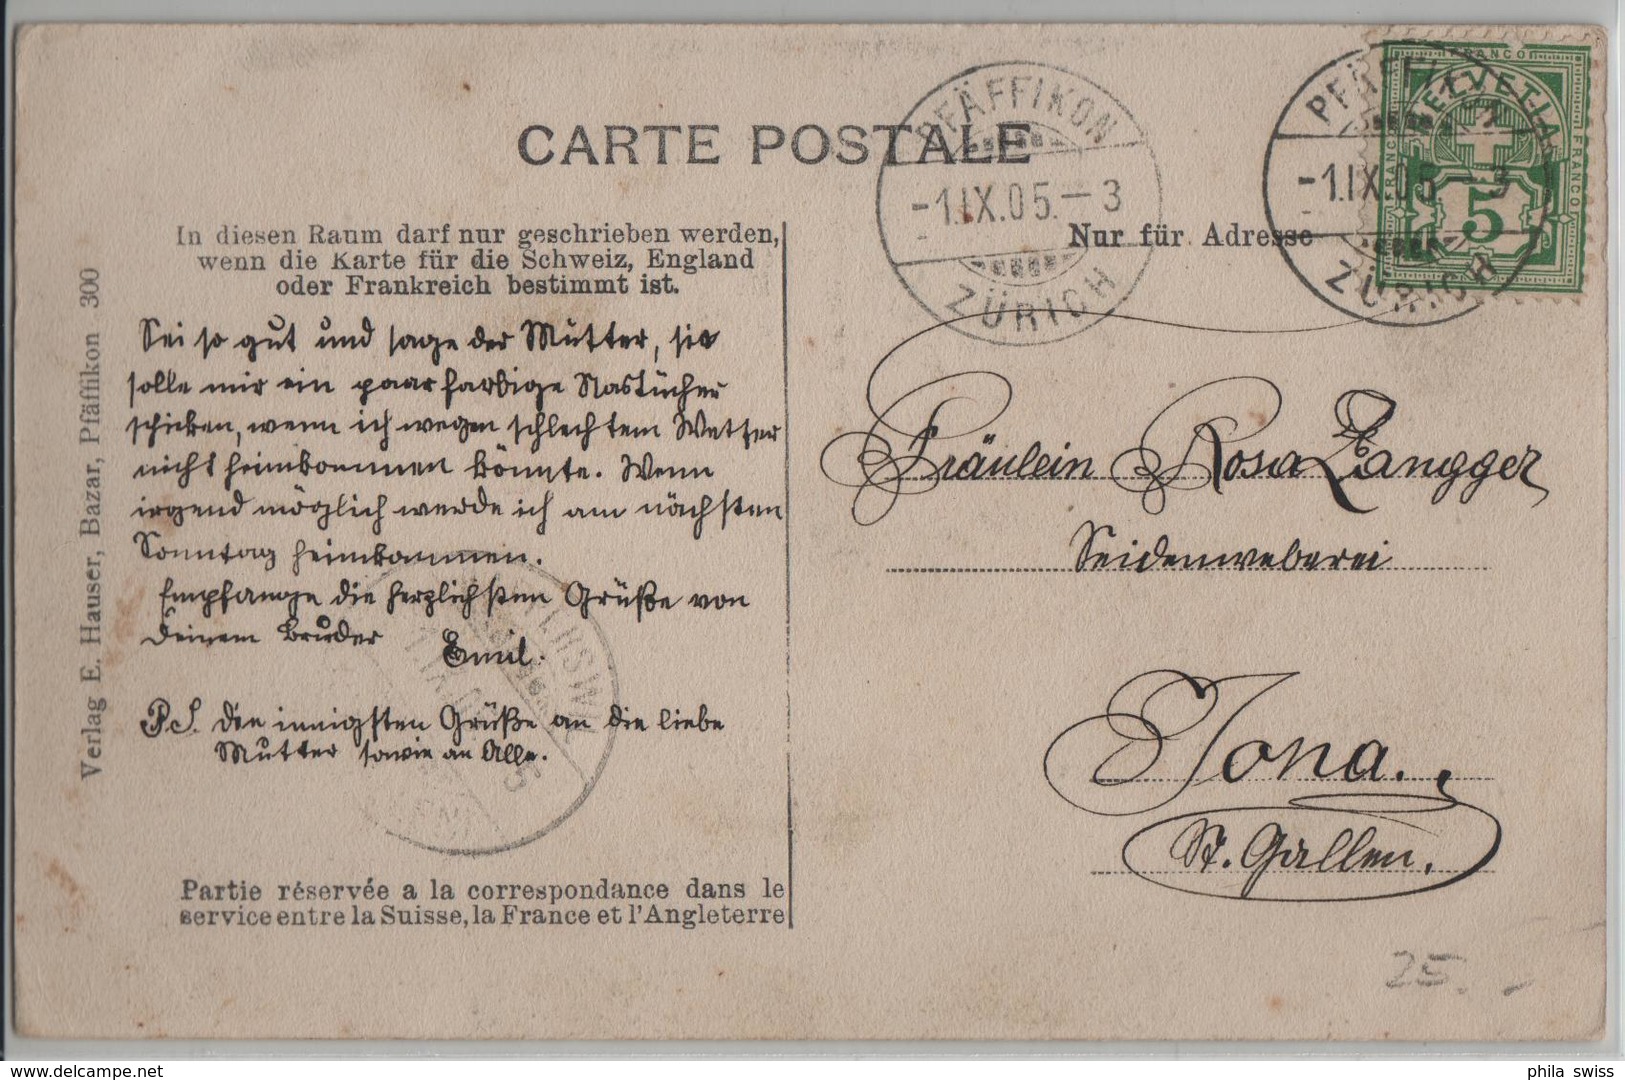 CARTE POSTALE
PFÄFFIKON
-1.IX.05.-3
ZÜRICH
PFÄFFIKON
-1.IX.05-3
ZÜRICH
FRANCO
HELVETIA
FRANCO
FRANCO
5
In diesen Raum darf nur geschrieben werden,
wenn die Karte für die Schweiz, England
oder Frankreich bestimmt ist.
Nur für Adresse
Verlag E. Hauser, Bazar, Pfäffikon 300
Sei so gut und sage der Mutter, sie
solle mir ein paar farbige Nastücher
schicken, wenn ich wegen schlechtem Wetter
nicht heimkommen könnte. Wenn
irgend möglich werde ich am nächsten
Sonntag heimkommen.
Empfange die herzlichsten Grüße von
Deinem Bruder
Emil.
PS. Die innigsten Grüße an die liebe
Mutter sowie an Alle.
Fräulein Rosa Zangger
Seidenweberei
Jona.
St. Gallen.
Partie réservée a la correspondance dans le
service entre la Suisse, la France et l'Angleterre
25.-
www.delcampe.net
phila swiss